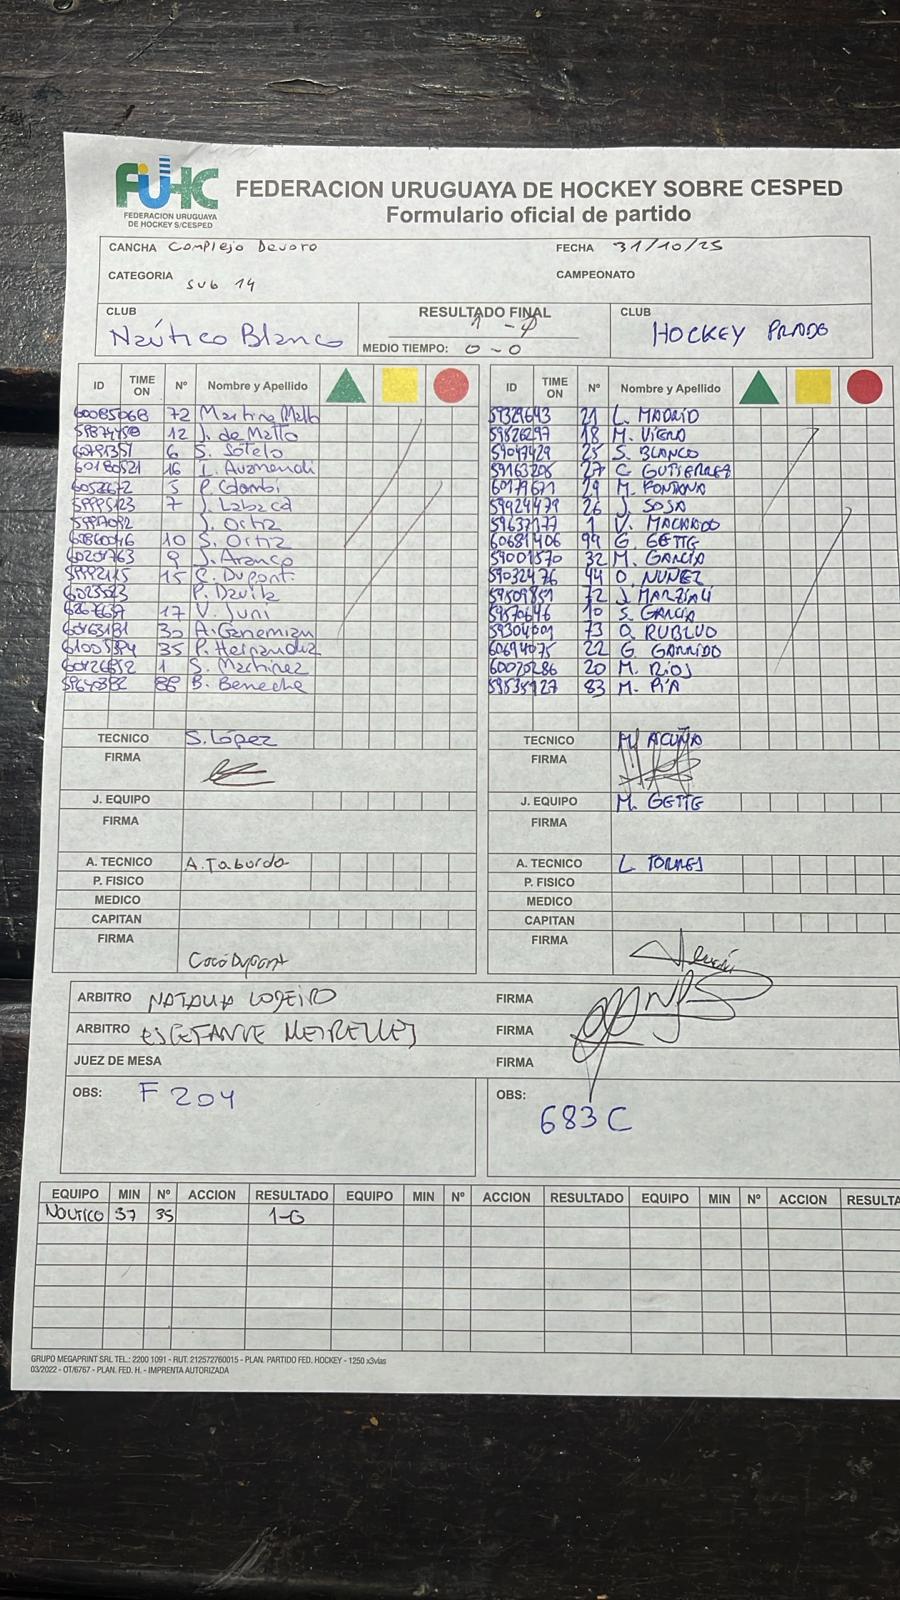 FUHC
FEDERACION URUGUAYA
DE HOCKEY S/CESPED
FEDERACION URUGUAYA DE HOCKEY SOBRE CESPED
Formulario oficial de partido
CANCHA Complejo Devoro FECHA 31/10/25
CATEGORIA Sub 14 CAMPEONATO
CLUB Naútico Blanco
RESULTADO FINAL 1-0
MEDIO TIEMPO: 0-0
CLUB HOCKEY PRADO
ID TIME ON Nº Nombre y Apellido ID TIME ON Nº Nombre y Apellido
60085068 72 Martina 59329643 21 L. MADRID
12 J. de Matto 59526297 18 M. VIERA
6 S. Sotelo 59047429 25 S. BLANCO
60180521 16 59163208 27 C GUTIERREZ
5 P. Colombi 60179671 29 M. FONTANA
59995123 7 J. Labaca 59924479 26 J. SOSA
J. Ortiz 59637177 1 V. MACHADO
60860046 10 S. Ortiz 60681406 99 G. GETTE
60201763 9 J. Aranco 59001570 32 M. GARCIA
15 C. Dupont 59032476 44 O. NUÑEZ
P. Davila 59509851 72 J. MARZIALI
17 V. Juni 59870646 10 S. GARCIA
60163181 30 A. 59304001 73 O. RUBLUO
61005384 35 P. Hernandez 60694075 22 G. GARRIDO
60126852 1 S. Martinez 60020286 20 M. RIOS
88 B. Beneche 59535127 83 M. PIA
TECNICO S. López TECNICO M. ACUÑA
FIRMA FIRMA
J. EQUIPO J. EQUIPO M. GETTE
FIRMA FIRMA
A. TECNICO A. Taborda A. TECNICO L TORRES
P. FISICO P. FISICO
MEDICO MEDICO
CAPITAN CAPITAN
FIRMA Cocó Dupont FIRMA
ARBITRO NATALIA LODEIRO FIRMA
ARBITRO ESTEFANIE MEIRELLES FIRMA
JUEZ DE MESA FIRMA
OBS: F 204 OBS: 683 C
EQUIPO MIN Nº ACCION RESULTADO EQUIPO MIN Nº ACCION RESULTADO EQUIPO MIN Nº ACCION RESULTA
Nautico 37 35 1-0
GRUPO MEGAPRINT SRL TEL.: 2200 1091 - RUT. 212572760015 - PLAN. PARTIDO FED. HOCKEY - 1250 x3vias
03/2022 - OT/6767 - PLAN. FED. H. - IMPRENTA AUTORIZADA